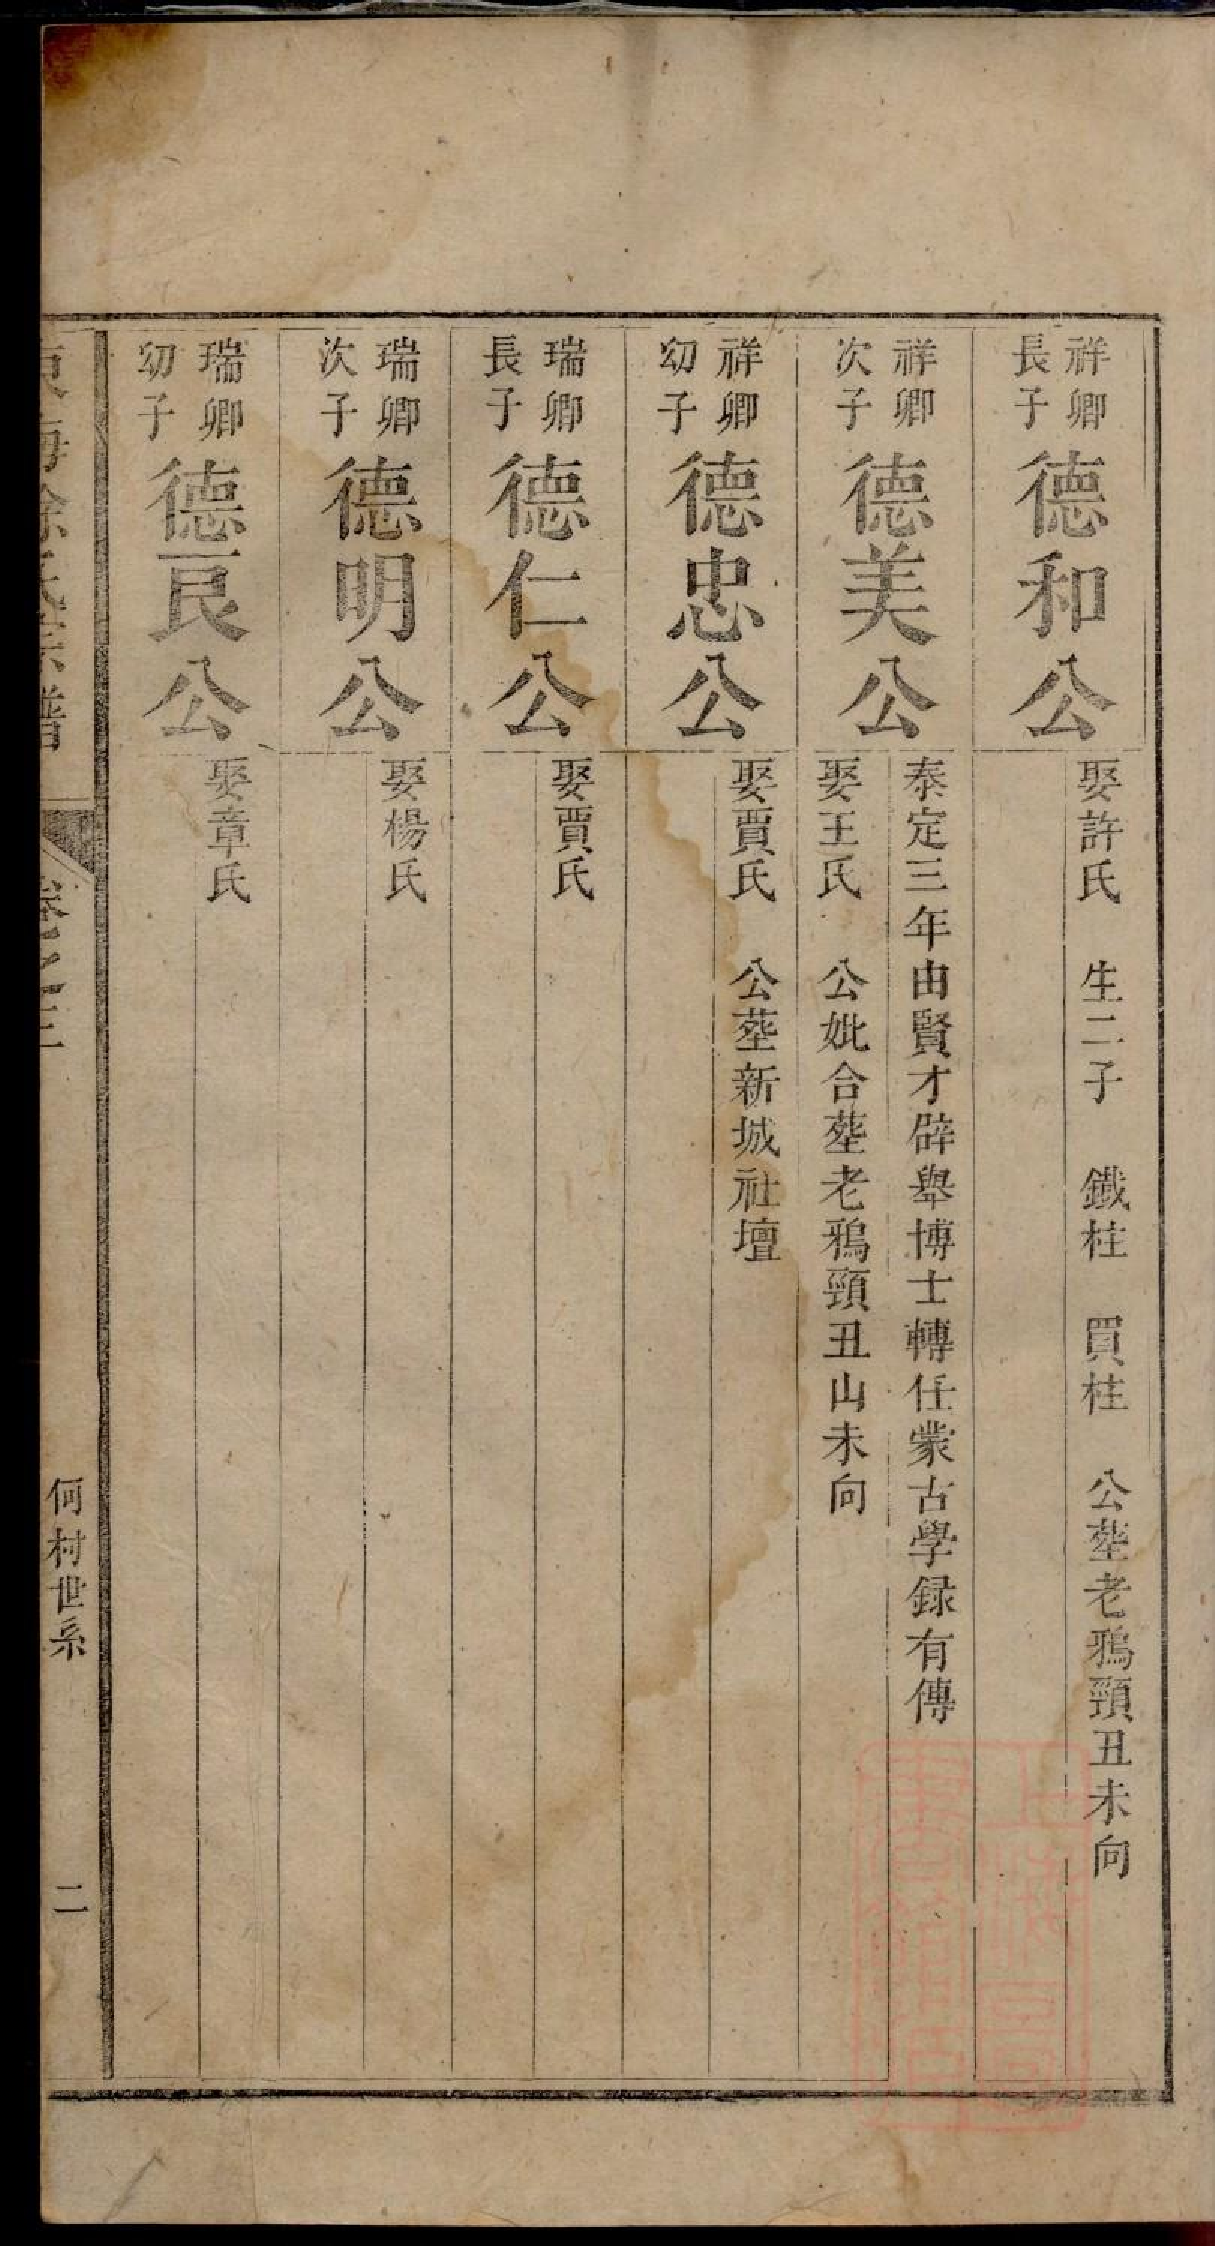 祥卿
長子
德和公
娶許氏　生二子　鐵柱　買柱　公塟老鴉頸丑未向
祥卿
次子
德美公
泰定三年由賢才辟舉博士轉任蒙古學録有傳
娶王氏　公妣合塟老鴉頸丑山未向
祥卿
幼子
德忠公
娶賈氏　公塟新城社壇
瑞卿
長子
德仁公
娶賈氏
瑞卿
次子
德明公
娶楊氏
瑞卿
幼子
德良公
娶章氏
東海徐氏宗譜
卷之三
何村世系
二
上海圖書館藏